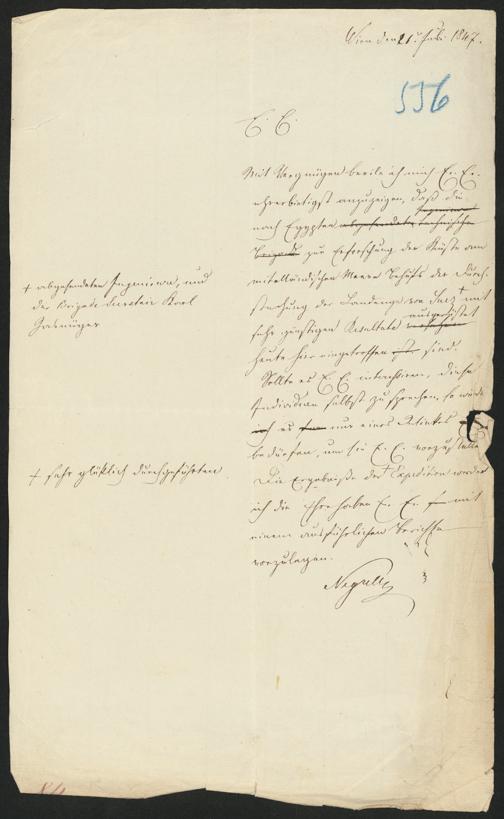 Wien den 21. Juli 1847.
536
E. E.
Mit Vergnügen beeile ich mich E. E.
ehrerbietigst anzuzeigen, daß die
nach Egypten abgesendete technische
Brigade zur Erforschung der Küste am
mittelländischen Meere behufs der Durch-
stechung der Landenge von Suez + mit
sehr günstigen Resultate ausgerüstet
heute hier eingetroffen ist sind.
Sollte es E. E. interessiren, diese
Individuen selbst zu sprechen, so würde
es nur eines Winkes
bedürfen, um sie E. E. vorzustellen
Die Ergebniße der + Expedition werde
ich die Ehre haben E. E. mit
einem ausführlichen Berichte
vorzulegen.
Negrelli
+ abgesendeten Ingenieure, und
der Brigade Karl
+ sehr glücklich durchgeführten